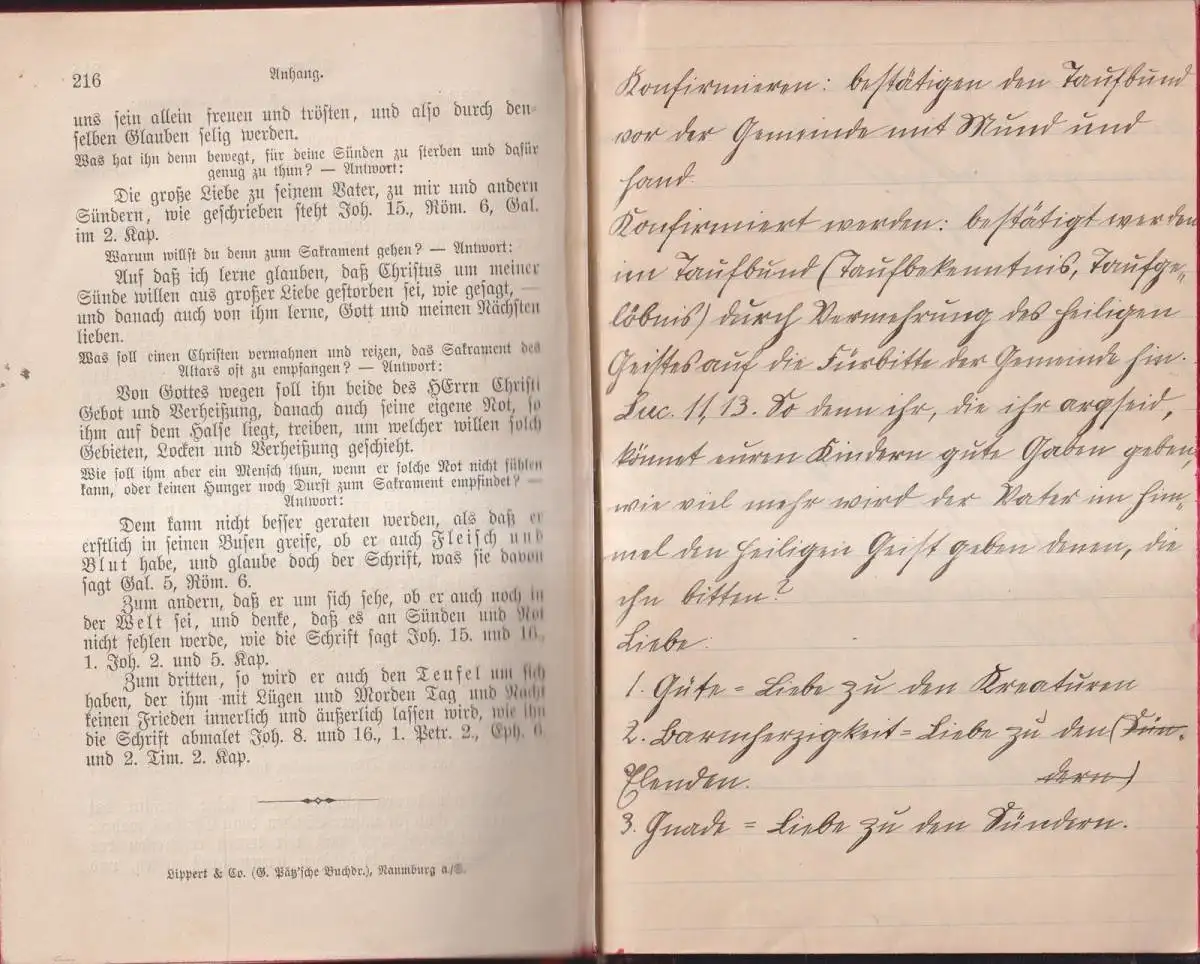 216
Anhang.
uns sein allein freuen und trösten, und also durch den-
selben Glauben selig werden.
Was hat ihn denn bewegt, für deine Sünden zu sterben und dafür
genug zu thun? — Antwort:
Die große Liebe zu seinem Vater, zu mir und andern
Sündern, wie geschrieben steht Joh. 15., Röm. 6, Gal.
im 2. Kap.
Warum willst du denn zum Sakrament gehen? — Antwort:
Auf daß ich lerne glauben, daß Christus um meiner
Sünde willen aus großer Liebe gestorben sei, wie gesagt, —
und danach auch von ihm lerne, Gott und meinen Nächsten
lieben.
Was soll einen Christen vermahnen und reizen, das Sakrament des
Altars oft zu empfangen? — Antwort:
Von Gottes wegen soll ihn beide des HErrn Christi
Gebot und Verheißung, danach auch seine eigene Not, so
ihm auf dem Halse liegt, treiben, um welcher willen solch
Gebieten, Locken und Verheißung geschieht.
Wie soll ihm aber ein Mensch thun, wenn er solche Not nicht fühlen
kann, oder keinen Hunger noch Durst zum Sakrament empfindet? —
Antwort:
Dem kann nicht besser geraten werden, als daß er
erstlich in seinen Busen greife, ob er auch Fleisch und
Blut habe, und glaube doch der Schrift, was sie davon
sagt Gal. 5, Röm. 6.
Zum andern, daß er um sich sehe, ob er auch noch in
der Welt sei, und denke, daß es an Sünden und Not
nicht fehlen werde, wie die Schrift sagt Joh. 15. und 16.,
1. Joh. 2. und 5. Kap.
Zum dritten, so wird er auch den Teufel um sich
haben, der ihm mit Lügen und Morden Tag und Nacht
keinen Frieden innerlich und äußerlich lassen wird, wie ihn
die Schrift abmalet Joh. 8. und 16., 1. Petr. 2., Eph. 6.
und 2. Tim. 2. Kap.
Lippert & Co. (G. Pätz'sche Buchdr.), Naumburg a/S.
Konfirmieren: bestätigen den Taufbund
vor der Gemeinde mit Mund und
Hand.
Konfirmiert werden: bestätigt werden
im Taufbund (Taufbekenntnis, Taufge-
löbnis) durch Vermehrung des heiligen
Geistes auf die Fürbitte der Gemeinde hin.
Luc. 11, 13. So denn ihr, die ihr arg seid,
könnet euren Kindern gute Gaben geben,
wie viel mehr wird der Vater im Him-
mel den heiligen Geist geben denen, die
ihn bitten?
Liebe:
1. Güte = Liebe zu den Kreaturen
2. Barmherzigkeit = Liebe zu den (Sün-
Elenden. dern)
3. Gnade = Liebe zu den Sündern.